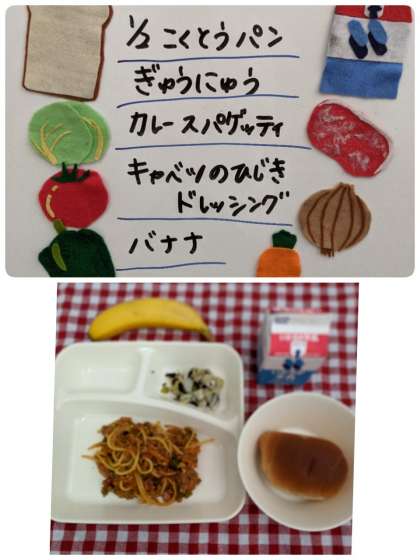 1/2 こくとうパン
ぎゅうにゅう
カレースパゲッティ
キャベツのひじき
ドレッシング
バナナ